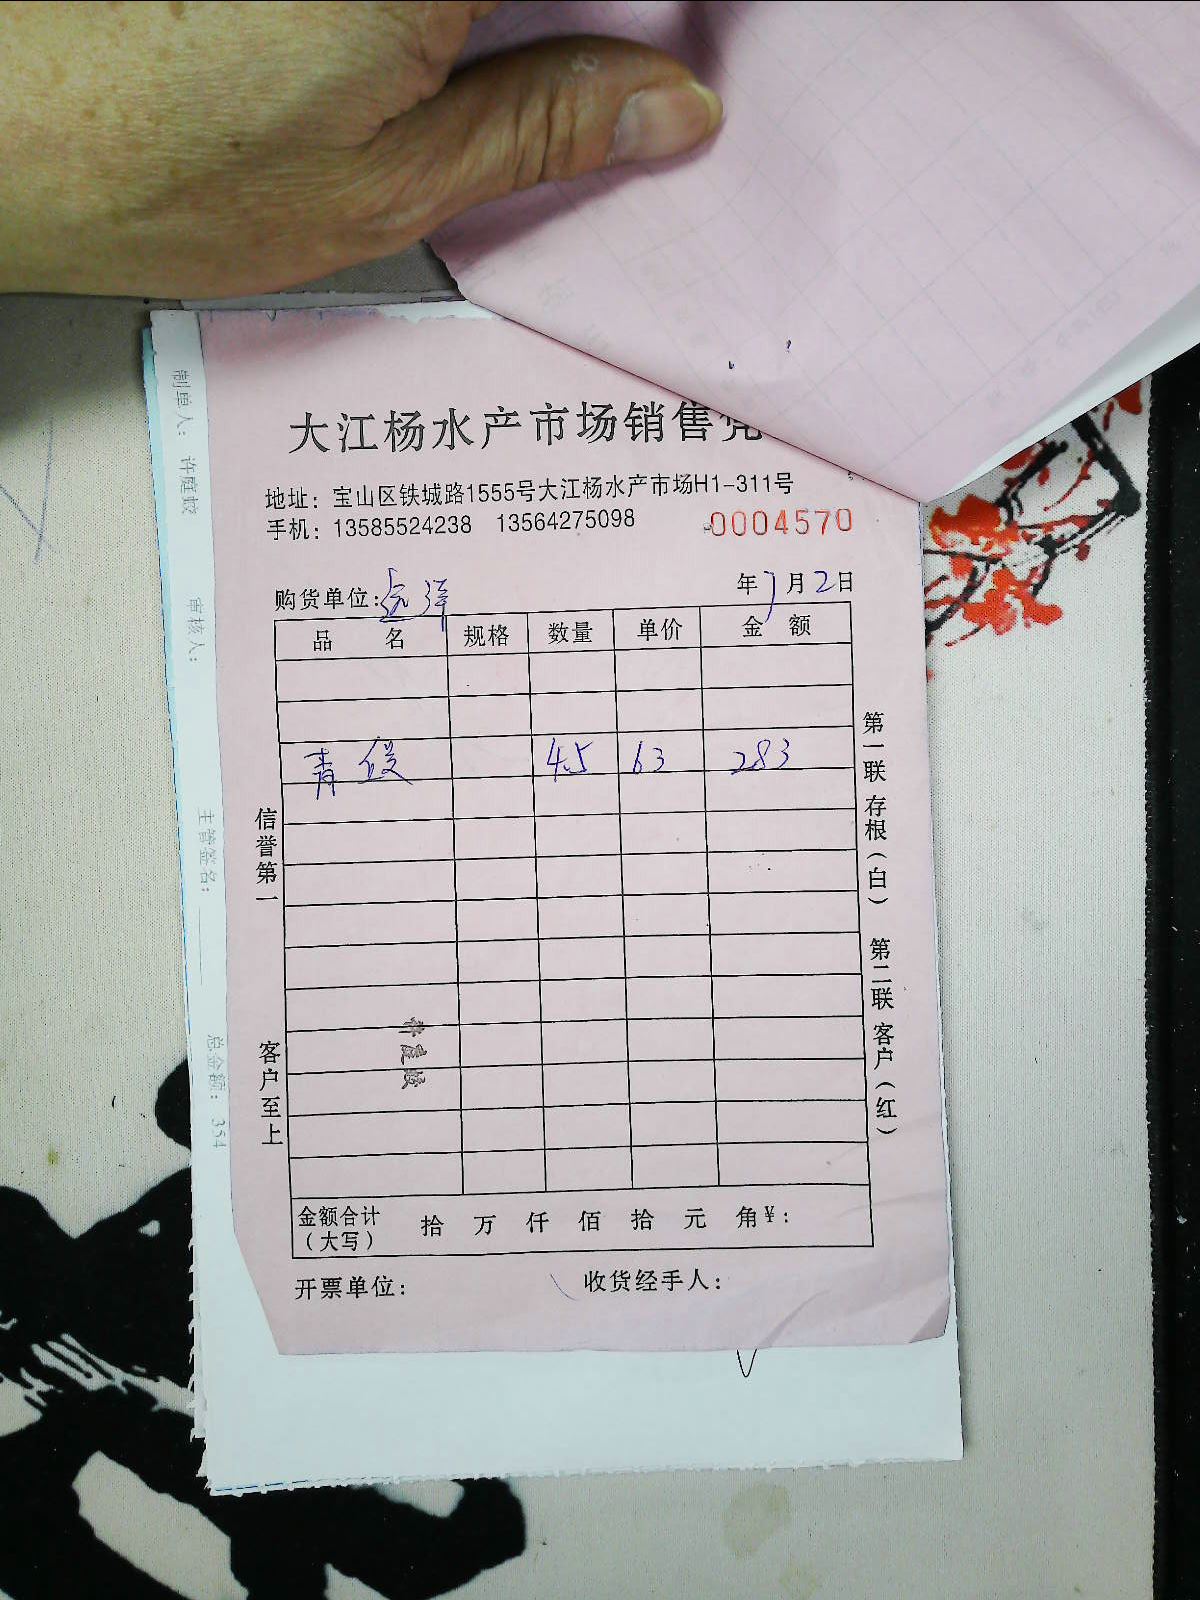 大江杨水产市场销售凭
地址：宝山区铁城路1555号大江杨水产市场H1-311号
手机：13585524238 13564275098 0004570
购货单位：远洋 年7月2日
品名 规格 数量 单价 金额
青 4.5 63 283
金额合计（大写） 拾 万 仟 佰 拾 元 角¥：
开票单位： 收货经手人：
信誉第一 客户至上
第一联 存根（白） 第二联 客户（红）
制单人： 许庭蛟 审核人： 主管签名： 总金额：354